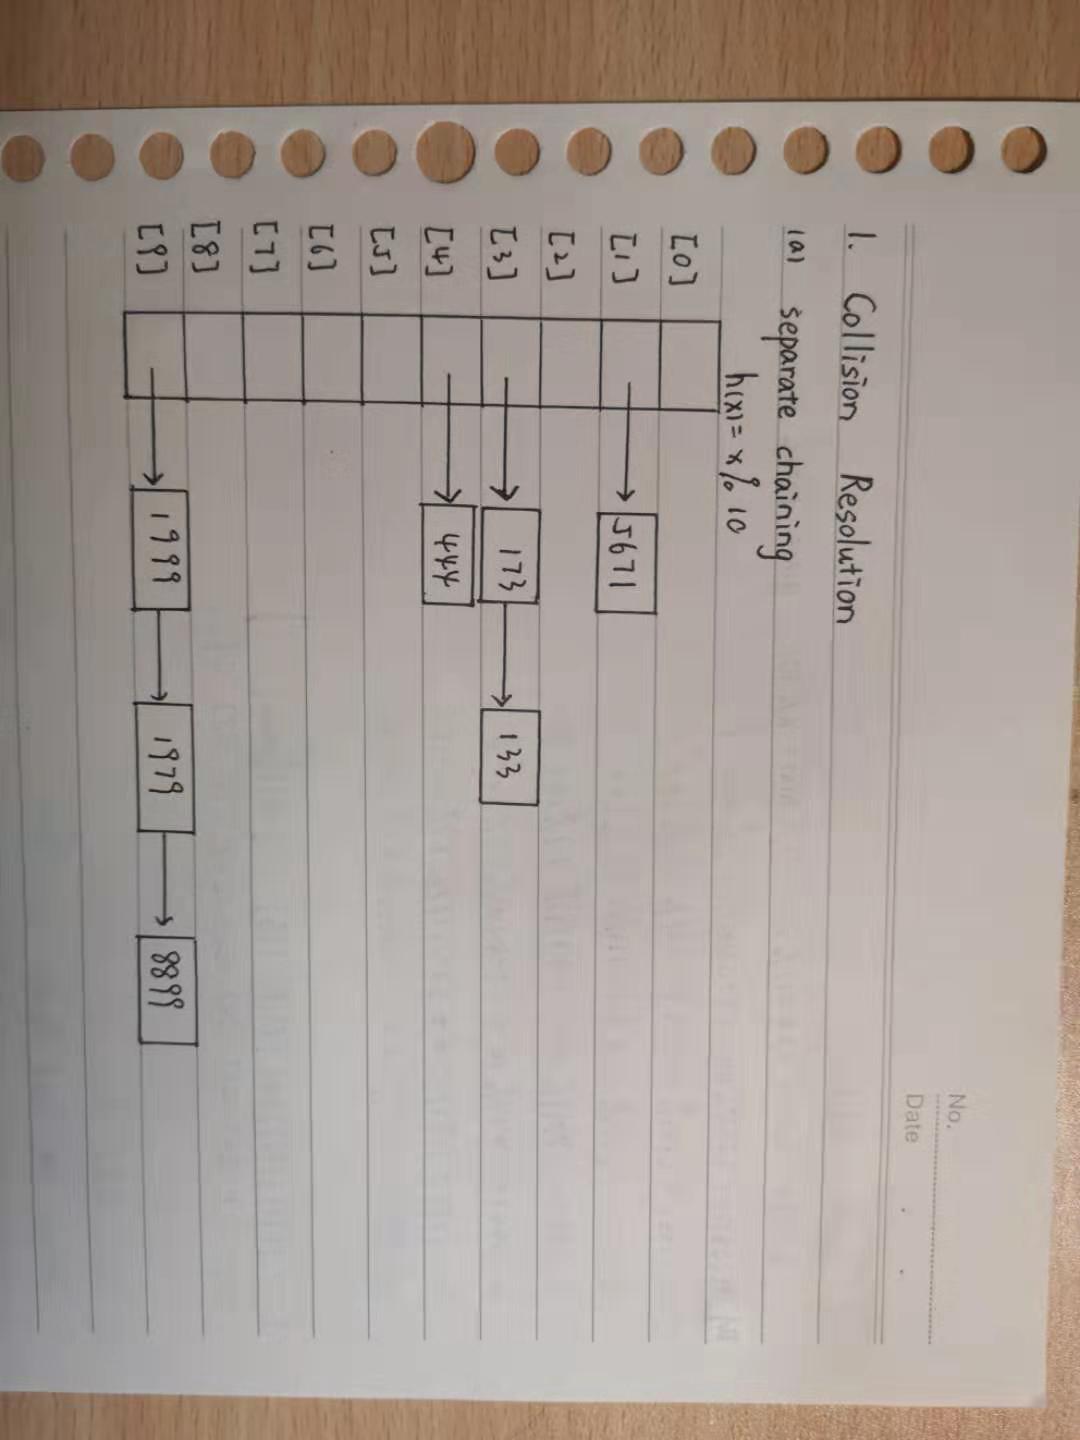 No.
Date
1. Collision Resolution
(a) separate chaining
h(x) = x % 10
[0]
[1] 5671
[2]
[3] 173 133
[4] 444
[5]
[6]
[7]
[8]
[9] 1999 1979 8899